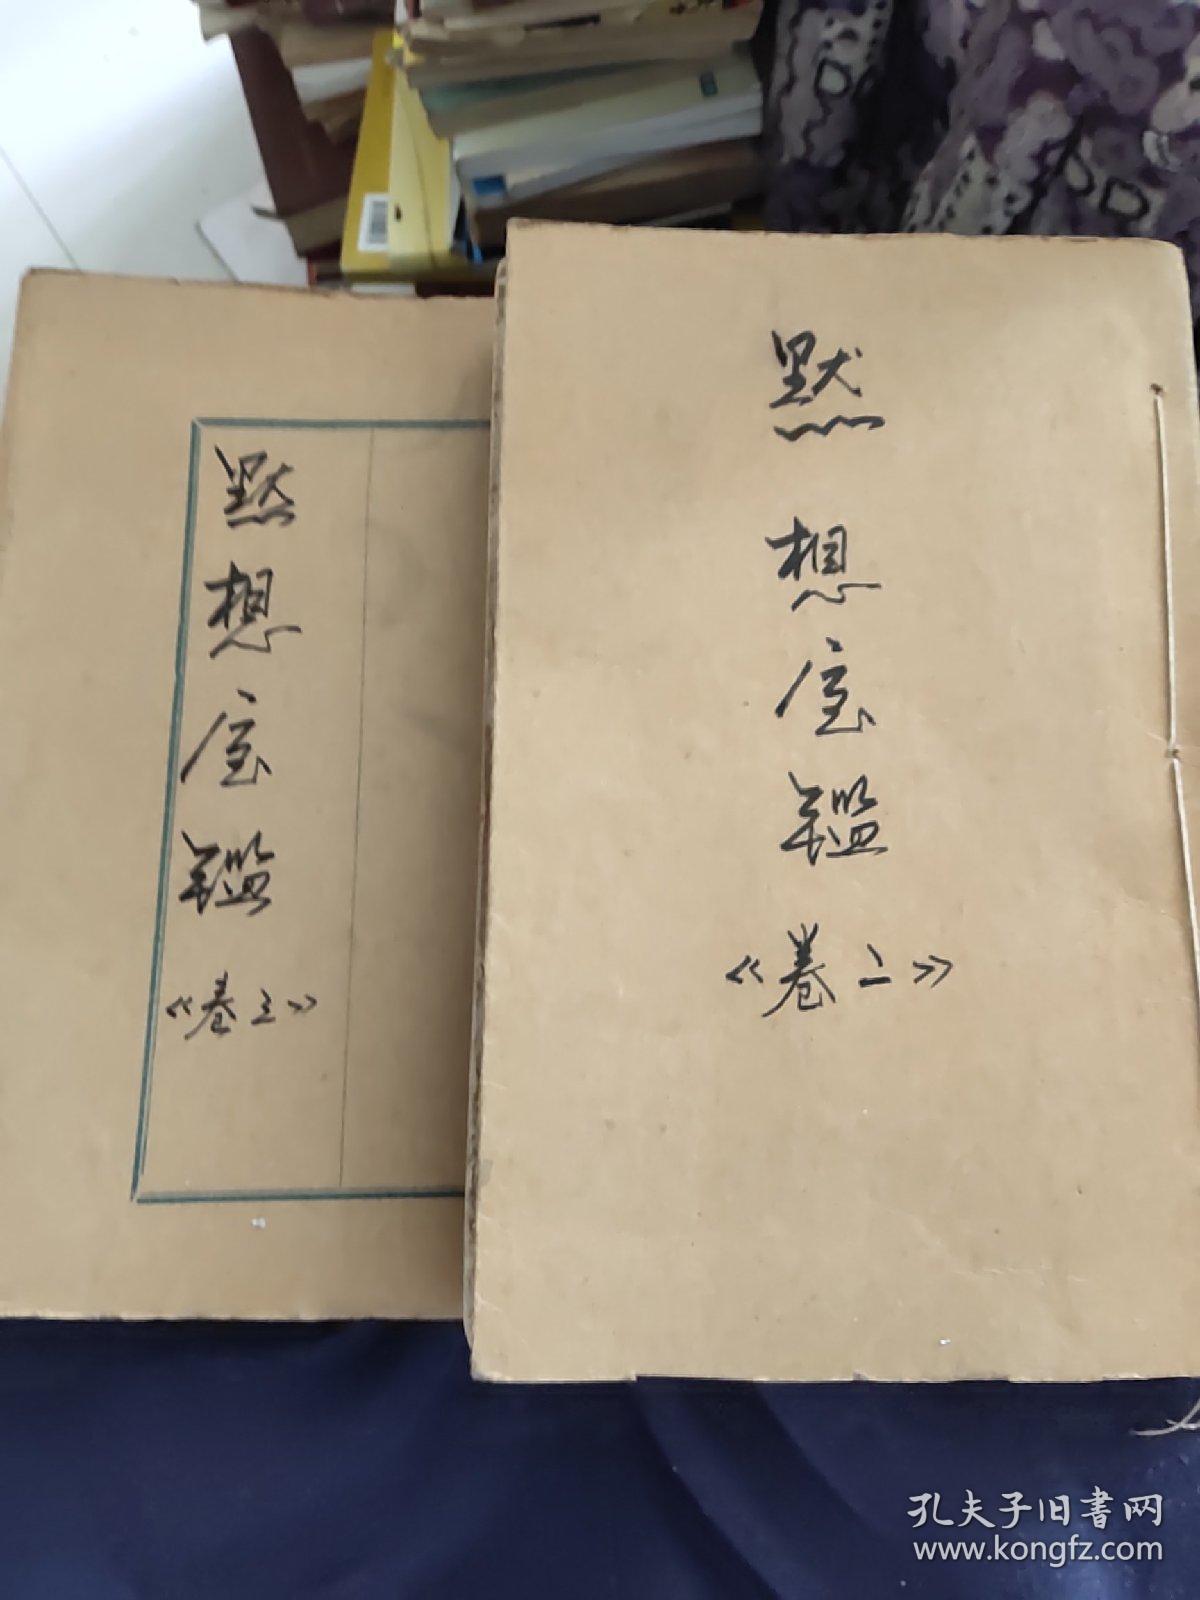 默想宝鑑
《卷二》
默想宝鑑
《卷三》
孔夫子旧書网
www.kongfz.com